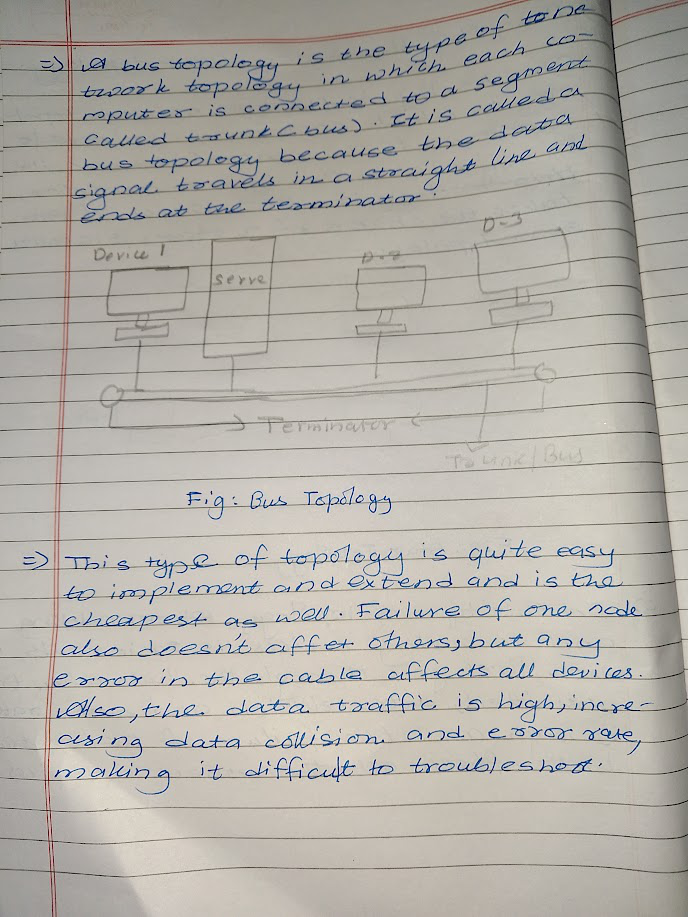 => A bus topology is the type of to ne
twork topology in which each co-
mputer is connected to a segment
called trunk (bus). It is called a
bus topology because the data
signal travels in a straight line and
ends at the terminator.
Device 1
serve
D-2
D-3
Terminator
Trunk/Bus
Fig: Bus Topology
=> This type of topology is quite easy
to implement and extend and is the
cheapest as well. Failure of one node
also doesn't affet others, but any
error in the cable affects all devices.
Also, the data traffic is high, incre-
asing data collision and error rate,
making it difficult to troubleshoot.